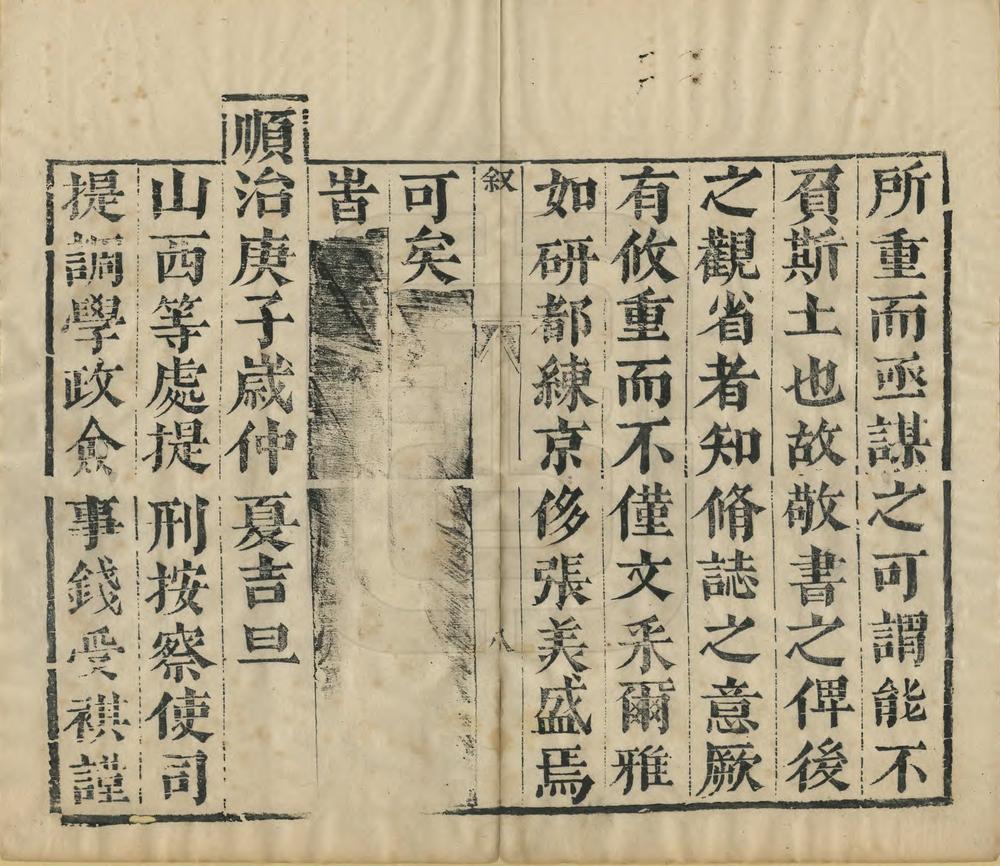 所重而亟謀之可謂能不
負斯土也故敬書之俾後
之觀省者知脩誌之意厥
有攸重而不僅文釆爾雅
如研都練京侈張美盛焉
叙 八
可矣
旹
順治庚子歳仲夏吉旦
山西等處提刑按察使司
提調學政僉事錢受祺謹